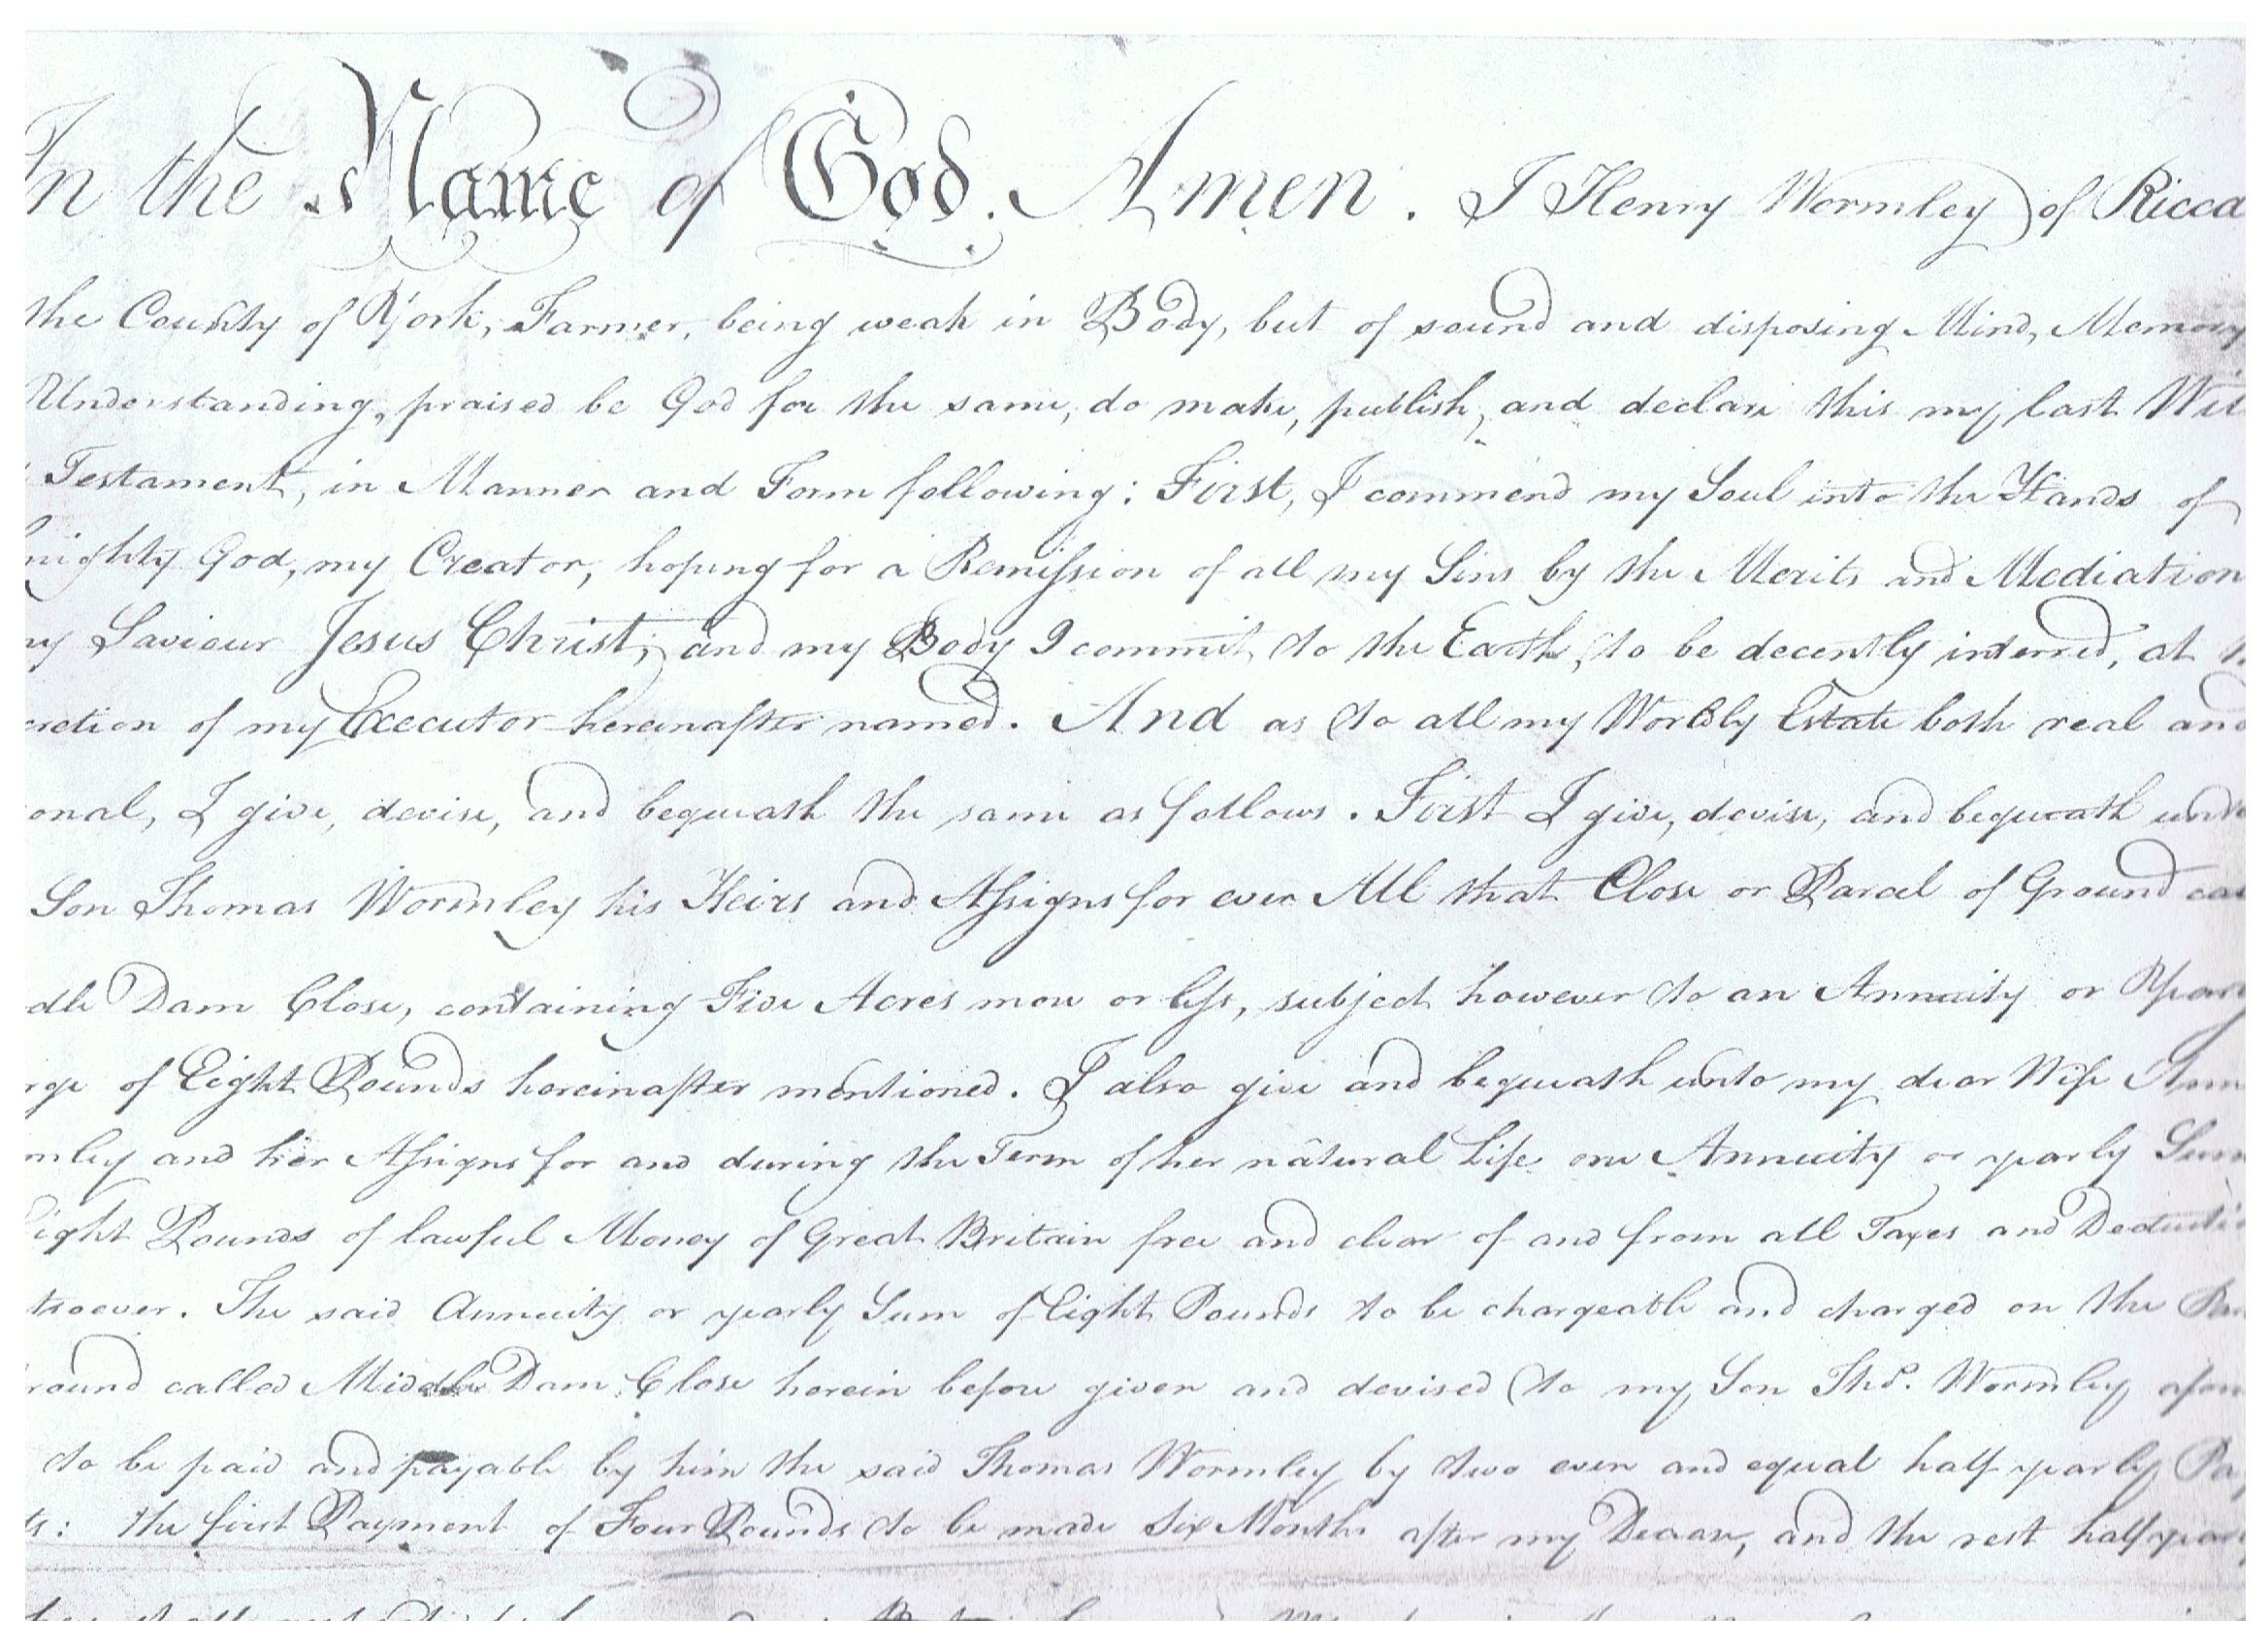 In the Name of God. Amen. I Henry Wormley of Ricca
the County of York, Farmer, being weak in Body, but of sound and disposing Mind, Memory
Understanding, praised be God for the same, do make, publish, and declare this my last Wil
Testament, in Manner and Form following: First, I commend my Soul into the Hands of
mighty God, my Creator, hoping for a Remission of all my Sins by the Merits and Mediation
my Saviour Jesus Christ; and my Body I commit to the Earth, to be decently interred, at t
cretion of my Executor hereinafter named. And as to all my Worldly Estate both real and
onal, I give, devise, and bequeath the same as follows. First I give, devise, and bequeath unto
Son Thomas Wormley his Heirs and Assigns for ever All that Close or Parcel of Ground cal
dle Dam Close, containing Five Acres more or less, subject however to an Annuity or Year
rge of Eight Pounds hereinafter mentioned. I also give and bequeath unto my dear Wife Ann
mley and her Assigns for and during the Term of her natural Life one Annuity or yearly Sum
Eight Pounds of lawful Money of Great Britain free and clear of and from all Taxes and Deducti
tsoever. The said Annuity or yearly Sum of Eight Pounds to be chargeable and charged on the Par
round called Middle Dam Close herein before given and devised to my Son Thos. Wormley afore
to be paid and payable by him the said Thomas Wormley by two even and equal half yearly Pay
ts: the first Payment of Four Pounds to be made Six Months after my Decease, and the rest half year